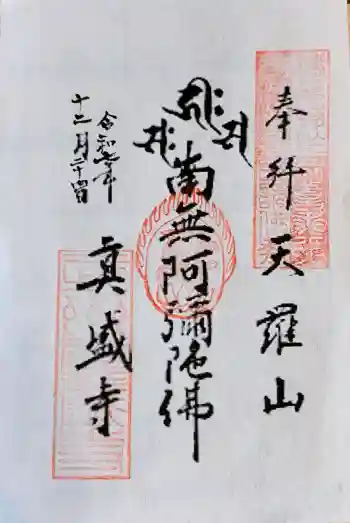 奉拝 天羅山
南無阿彌陀佛
令和七年
十二月二十四日
真盛寺